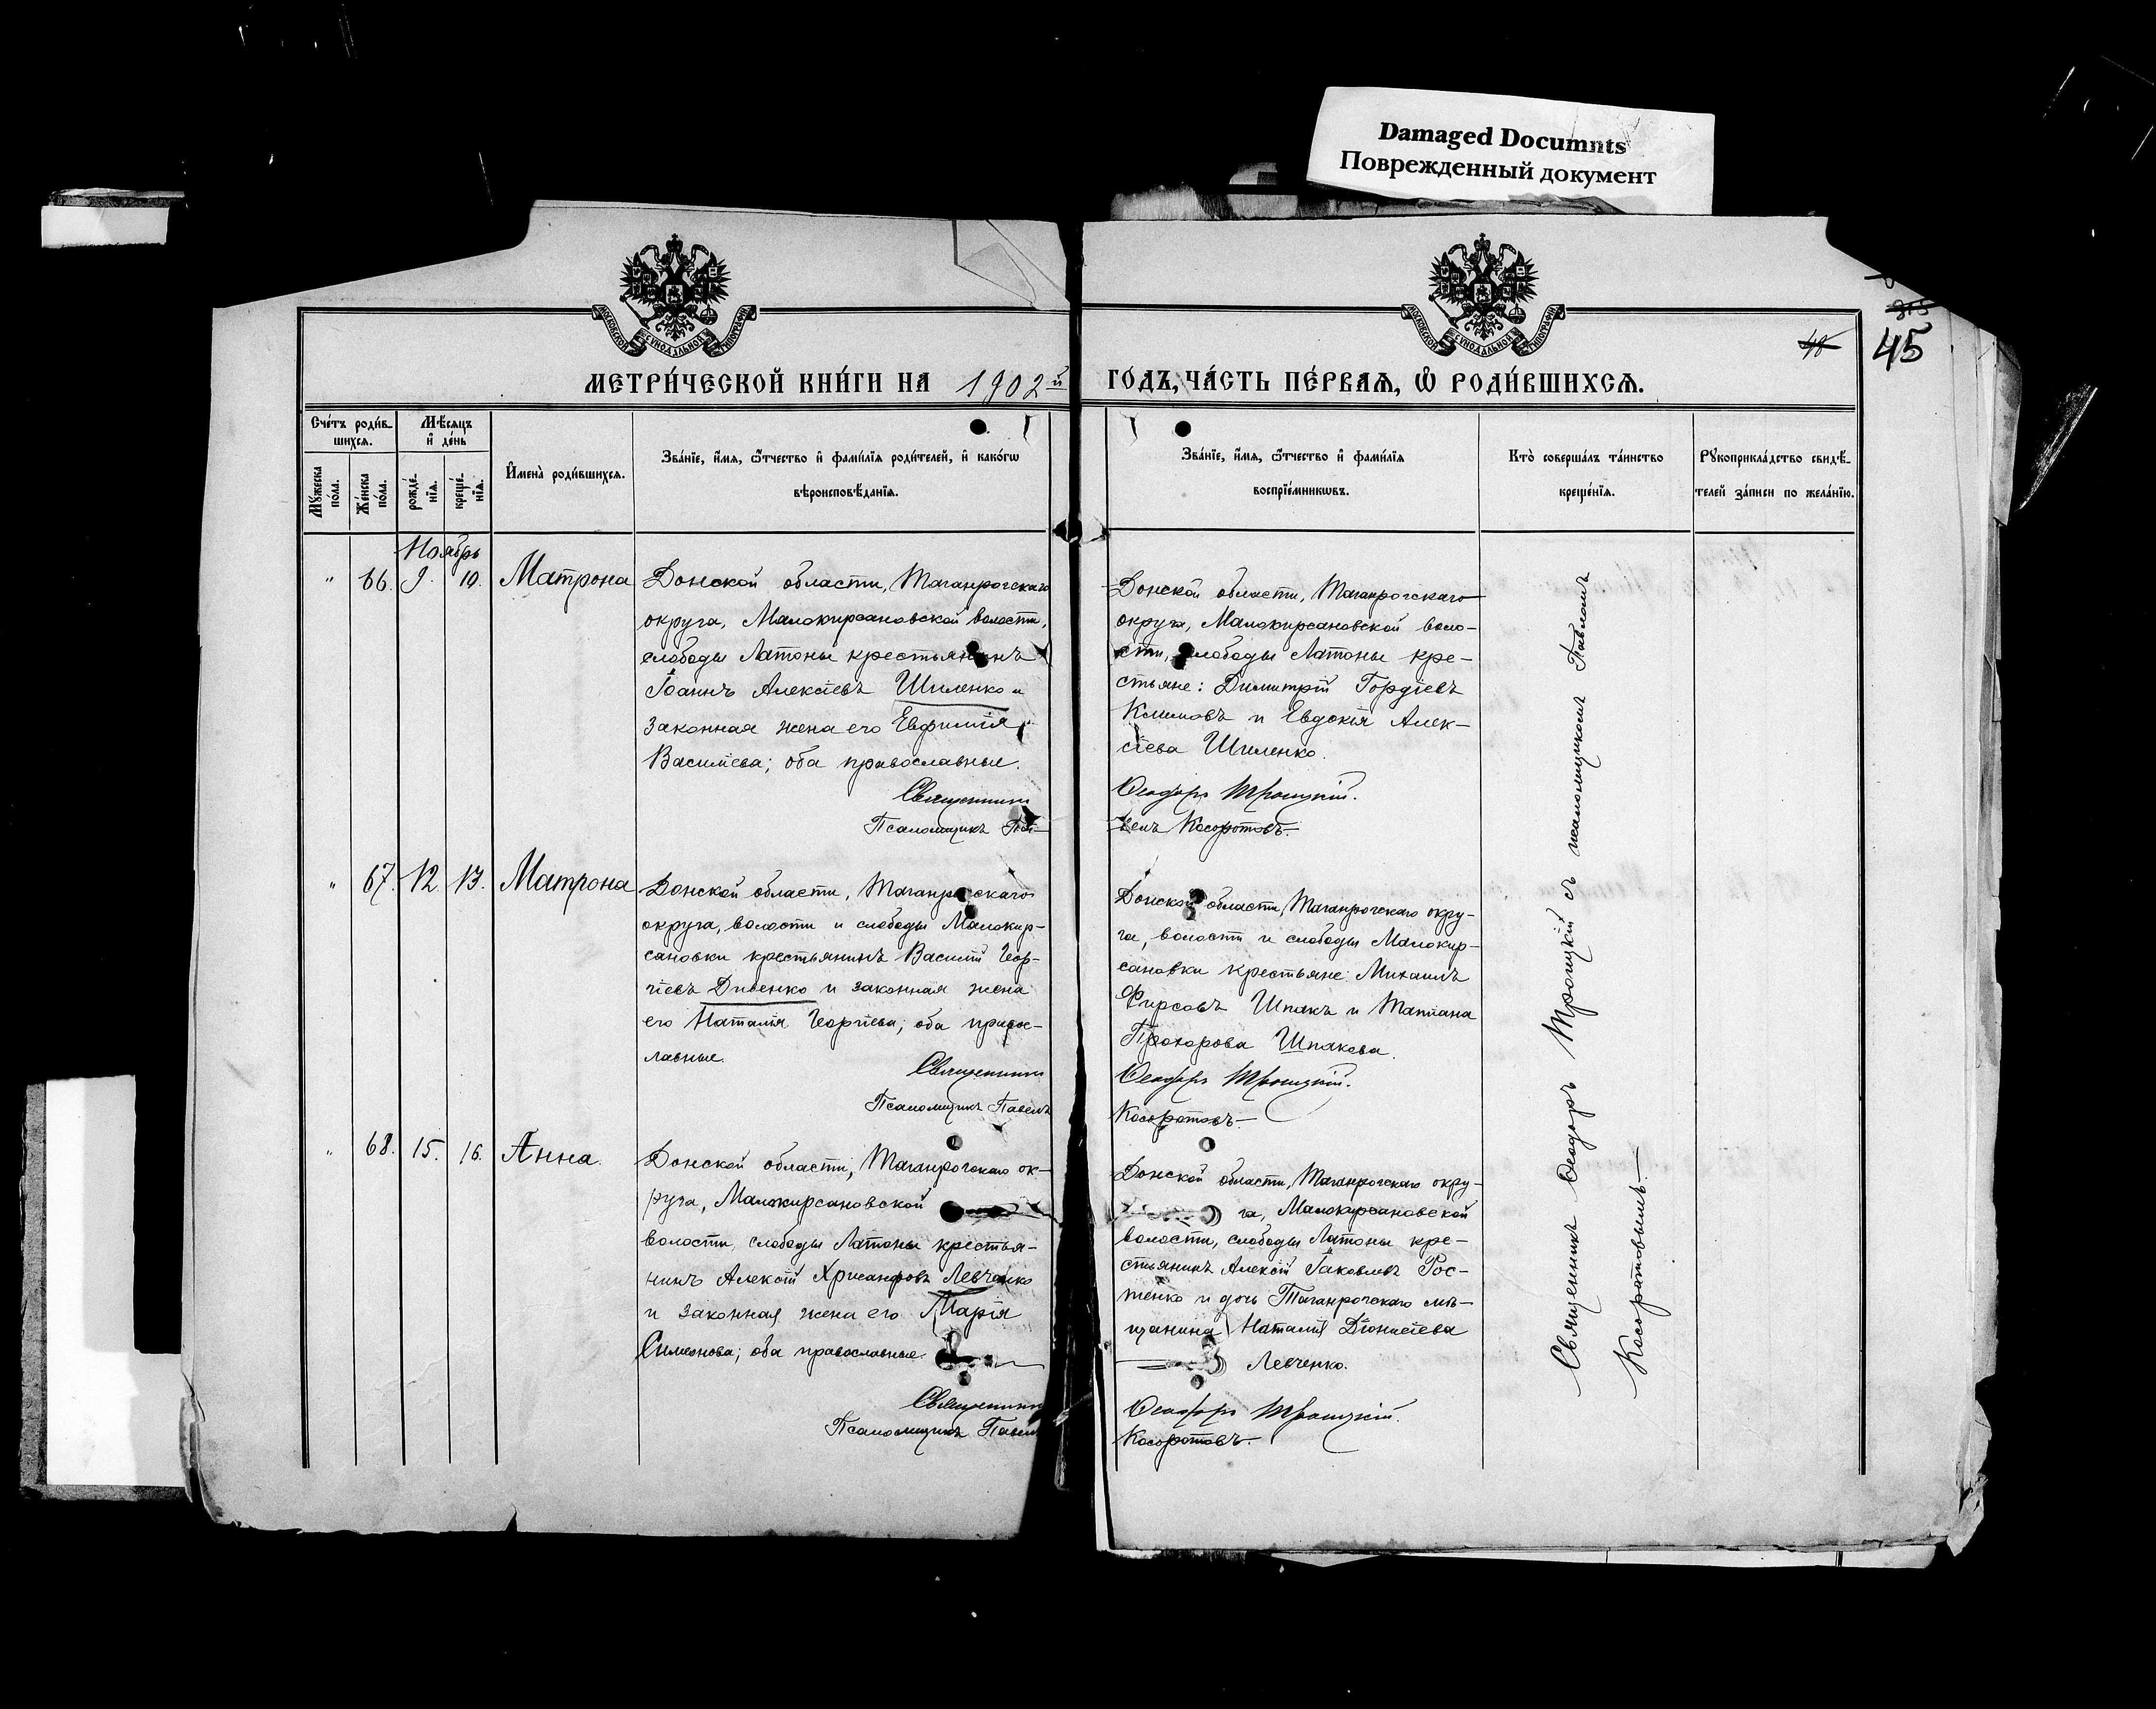 Damaged Documnts
Поврежденный документ
МОСКОВСКОЙ СѴНОДАЛЬНОЙ ТИПОГРАФІИ
МОСКОВСКОЙ СѴНОДАЛЬНОЙ ТИПОГРАФІИ
315
48
45
МЕТРИ́ЧЕСКОЙ КНИ́ГИ НА 1902й ГОДЪ, ЧА́СТЬ ПЕ́РВАѦ, Ѡ҆ РОДИ́ВШИХСѦ.
Сче́тъ роди́в-
шихсѧ.
Мꙋ́жеска
по́ла.
Же́нска
по́ла.
Мѣ́сѧцъ
и҆ де́нь
рожде́-
нїѧ.
креще́-
нїѧ.
И҆мена̀ роди́вшихсѧ.
Зва́нїе, и҆́мѧ, ѻ҆́тчество и҆ фами́лїѧ роди́телей, и҆ како́гѡ
вѣроисповѣ́данїѧ.
Зва́нїе, и҆́мѧ, ѻ҆́тчество и҆ фами́лїѧ
воспрїе́мникѡвъ.
Кто̀ соверша́лъ та́инство
креще́нїѧ.
Рꙋкоприкла́дство свидѣ́-
телей за́писи по жела́нїю.
Ноябрь
" 66. 9. 10. Матрона
Донской области, Таганрогскаго
округа, Малокирсановской волости,
слободы Латоны крестьянинъ
Іоаннъ Алексіевъ Шиленко и
законная жена его Евфимія
Васильева; оба православные.
Священникъ
Псаломщикъ Па-
Донской области, Таганрогскаго
округа, Малокирсановской воло-
сти, слободы Латоны кре-
стьяне: Димитрій Гордіевъ
Климовъ и Евдокія Алек-
сіева Шиленко.
Ѳеодоръ Троицкій.
велъ Косоротовъ.
" 67. 12. 13. Матрона
Донской области, Таганрогскаго
округа, волости и слободы Малокир-
сановки крестьянинъ Василій Геор-
гіевъ Дивенко и законная жена
его Наталія Георгіева; оба право-
славные.
Священникъ
Псаломщикъ Павелъ
Донской области, Таганрогскаго окру-
га, волости и слободы Малокир-
сановки крестьяне: Михаилъ
Фирсовъ Шпакъ и Татіана
Прохорова Шпакова.
Ѳеодоръ Троицкій.
Косоротовъ.
" 68. 15. 16. Анна.
Донской области, Таганрогскаго ок-
руга, Малокирсановской
волости, слободы Латоны крестья-
нинъ Алексій Хрисанфовъ Левченко
и законная жена его Марія
Симеонова; оба православные.
Священникъ
Псаломщикъ Павелъ
Донской области, Таганрогскаго окру-
га, Малокирсановской
волости, слободы Латоны кре-
стьянинъ Алексій Іаковлевъ Рос-
тенко и дочь Таганрогскаго мѣ-
щанина Наталія Діонисіева
Левченко.
Ѳеодоръ Троицкій.
Косоротовъ.
Священникъ Ѳеодоръ Троицкій съ псаломщикомъ Павломъ
Косоротовымъ.